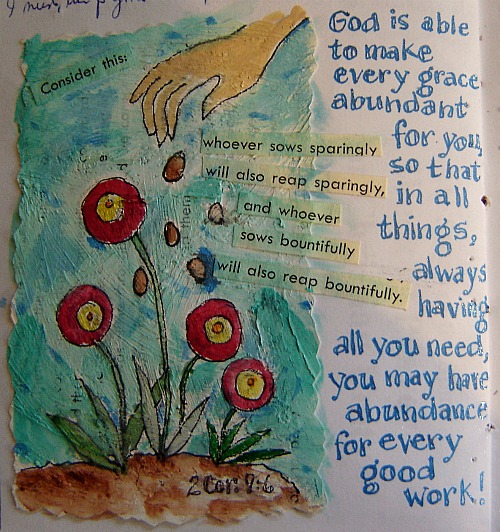 Consider this:
whoever sows sparingly
will also reap sparingly,
and whoever
sows bountifully
will also reap bountifully.
2 Cor. 9:6
God is able
to make
every grace
abundant
for you,
so that
in all
things,
always
having
all you need,
you may have
abundance
for every
good
work!